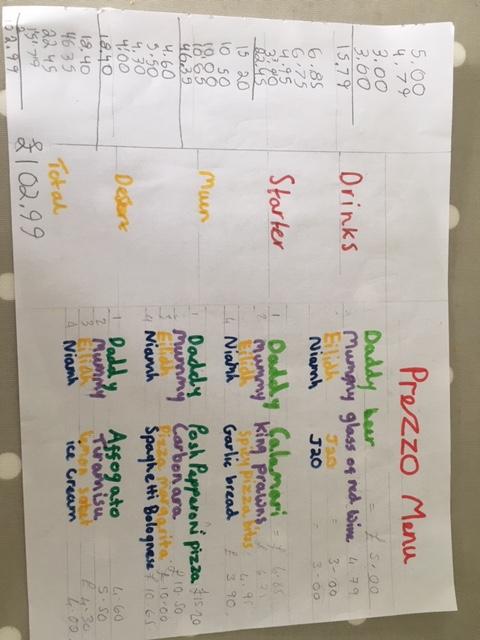 Prezzo Menu
5.00
4.79
3.00
3.00
15.79
Drinks
Daddy beer = £5.00
Mummy glass of red wine 4.79
Eilidh J2O = 3.00
Niamh J2O = 3.00
6.85
6.75
4.95
3.90
22.45
Starter
1 Daddy Calamari = £ 6.85
2 Mummy King prawns £ 6.75
Eilidh spicy pizza bites 4.95
4 Niamh Garlic bread £ 3.90
15 20
10 50
10.00
10.65
Main
1 Daddy Posh Pepparoni pizza £15.20
Mummy Carbonara £10.50
Eilidh Pizza margarita £10.00
4 Niamh Spaghetti Bolognese £10.65
4.60
5.50
4.30
4.00
18.40
Desert
1 Daddy Affogato 4.60
2 Mummy Tiramisu 5.50
3 Eilidh lemon sorbet £4.30
4 Niamh ice cream 4.00
18.40
46.35
22.45
15.79
Total £102.99